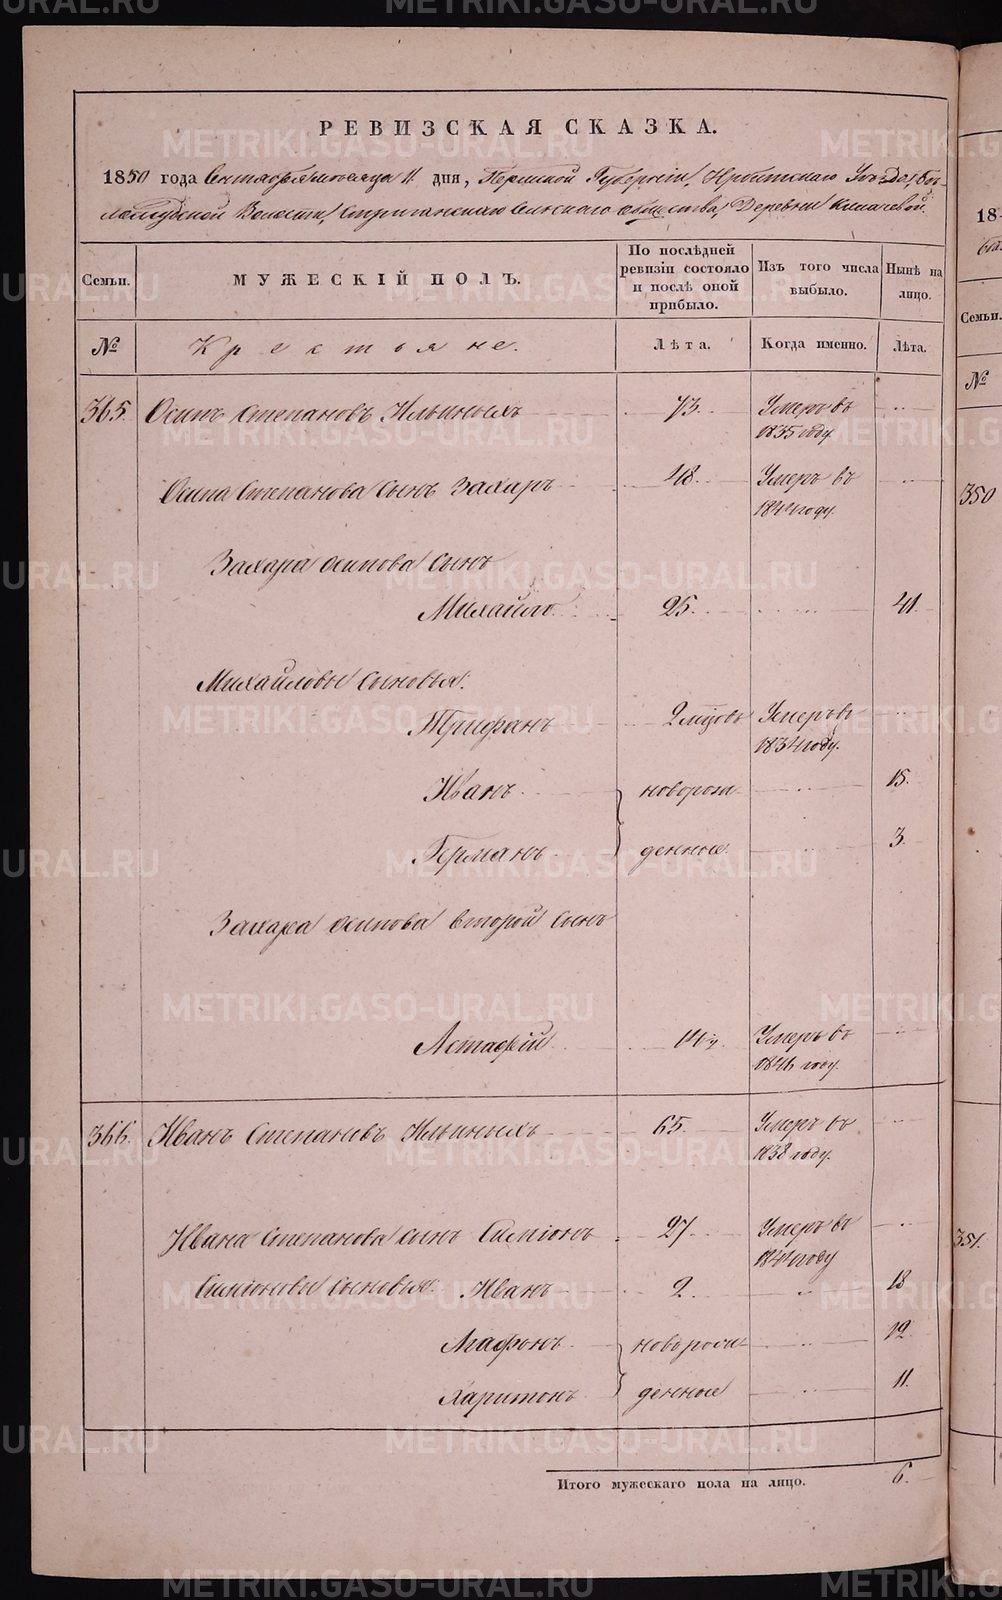 РЕВИЗСКАЯ СКАЗКА.
1850 года Сентября месяца 11 дня, Пермской Губернии, Ирбитского Уезда,
Волости, Стриганского Сельского общества, Деревни Ключевой.
Семьи.
МУЖЕСКІЙ ПОЛЪ.
По послѣдней ревизіи состояло и послѣ оной прибыло.
Изъ того числа выбыло.
Нынѣ на лицо.
№
Крестьяне.
Лѣта.
Когда именно.
Лѣта.
365. Осипъ Степановъ Ильиныхъ 73. Умеръ въ 1835 году
Осипа Степанова сынъ Захаръ 48. Умеръ въ 1844 году.
Захара Осипова сынъ
Михайло 25. 41
Михайловы сыновья:
Трифанъ 2 мцовъ Умеръ въ 1834 году.
Иванъ новорож 15.
Германъ денные. 3.
Захара Осипова второй сынъ
Астафій 14½ Умеръ въ 1846 году.
366. Иванъ Степановъ Ильиныхъ 65. Умеръ въ 1838 году.
Ивана Степанова сынъ Симіонъ 27 Умеръ въ 1841 году
Симіоновы сыновья: Иванъ 2. 18
Агафонъ новорож 12.
Харитонъ денные 11.
Итого мужескаго пола на лицо. 6.
18
Семьи.
№
350
351.
METRIKI.GASO-URAL.RU